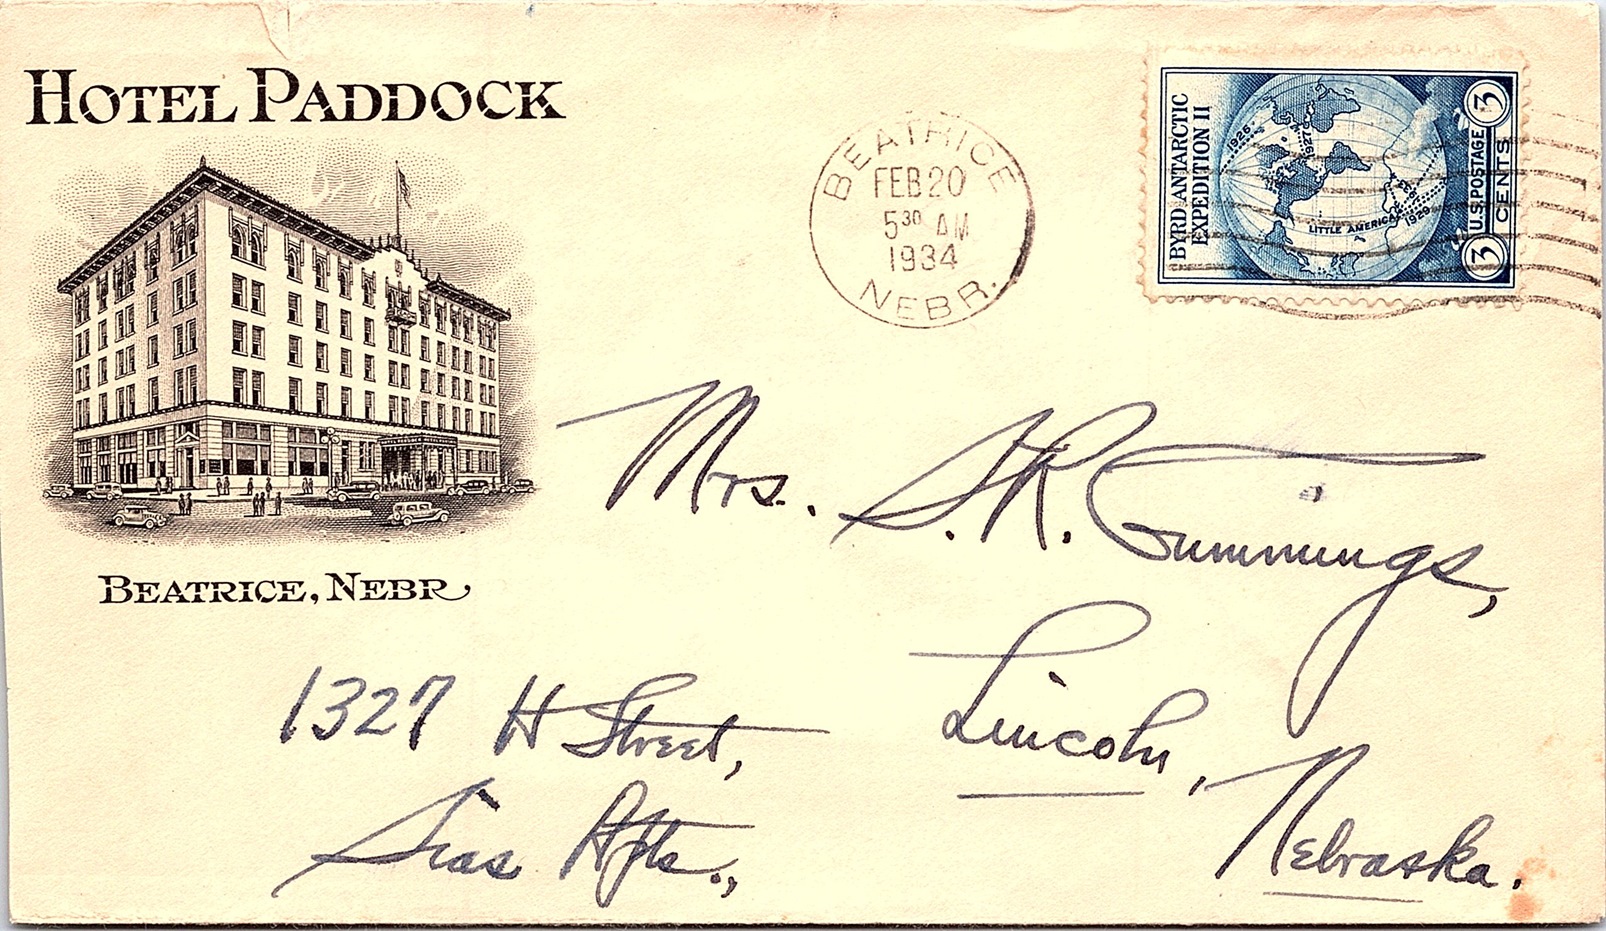 HOTEL PADDOCK
BEATRICE, NEBR
BEATRICE
FEB 20
5 30 AM
1934
NEBR.
BYRD ANTARCTIC
EXPEDITION II
1926
1927
LITTLE AMERICA
1929
U.S. POSTAGE
3 CENTS 3
Mrs. S. R. Cummings,
1327 H Street,
Lincoln,
Apts.,
Nebraska.